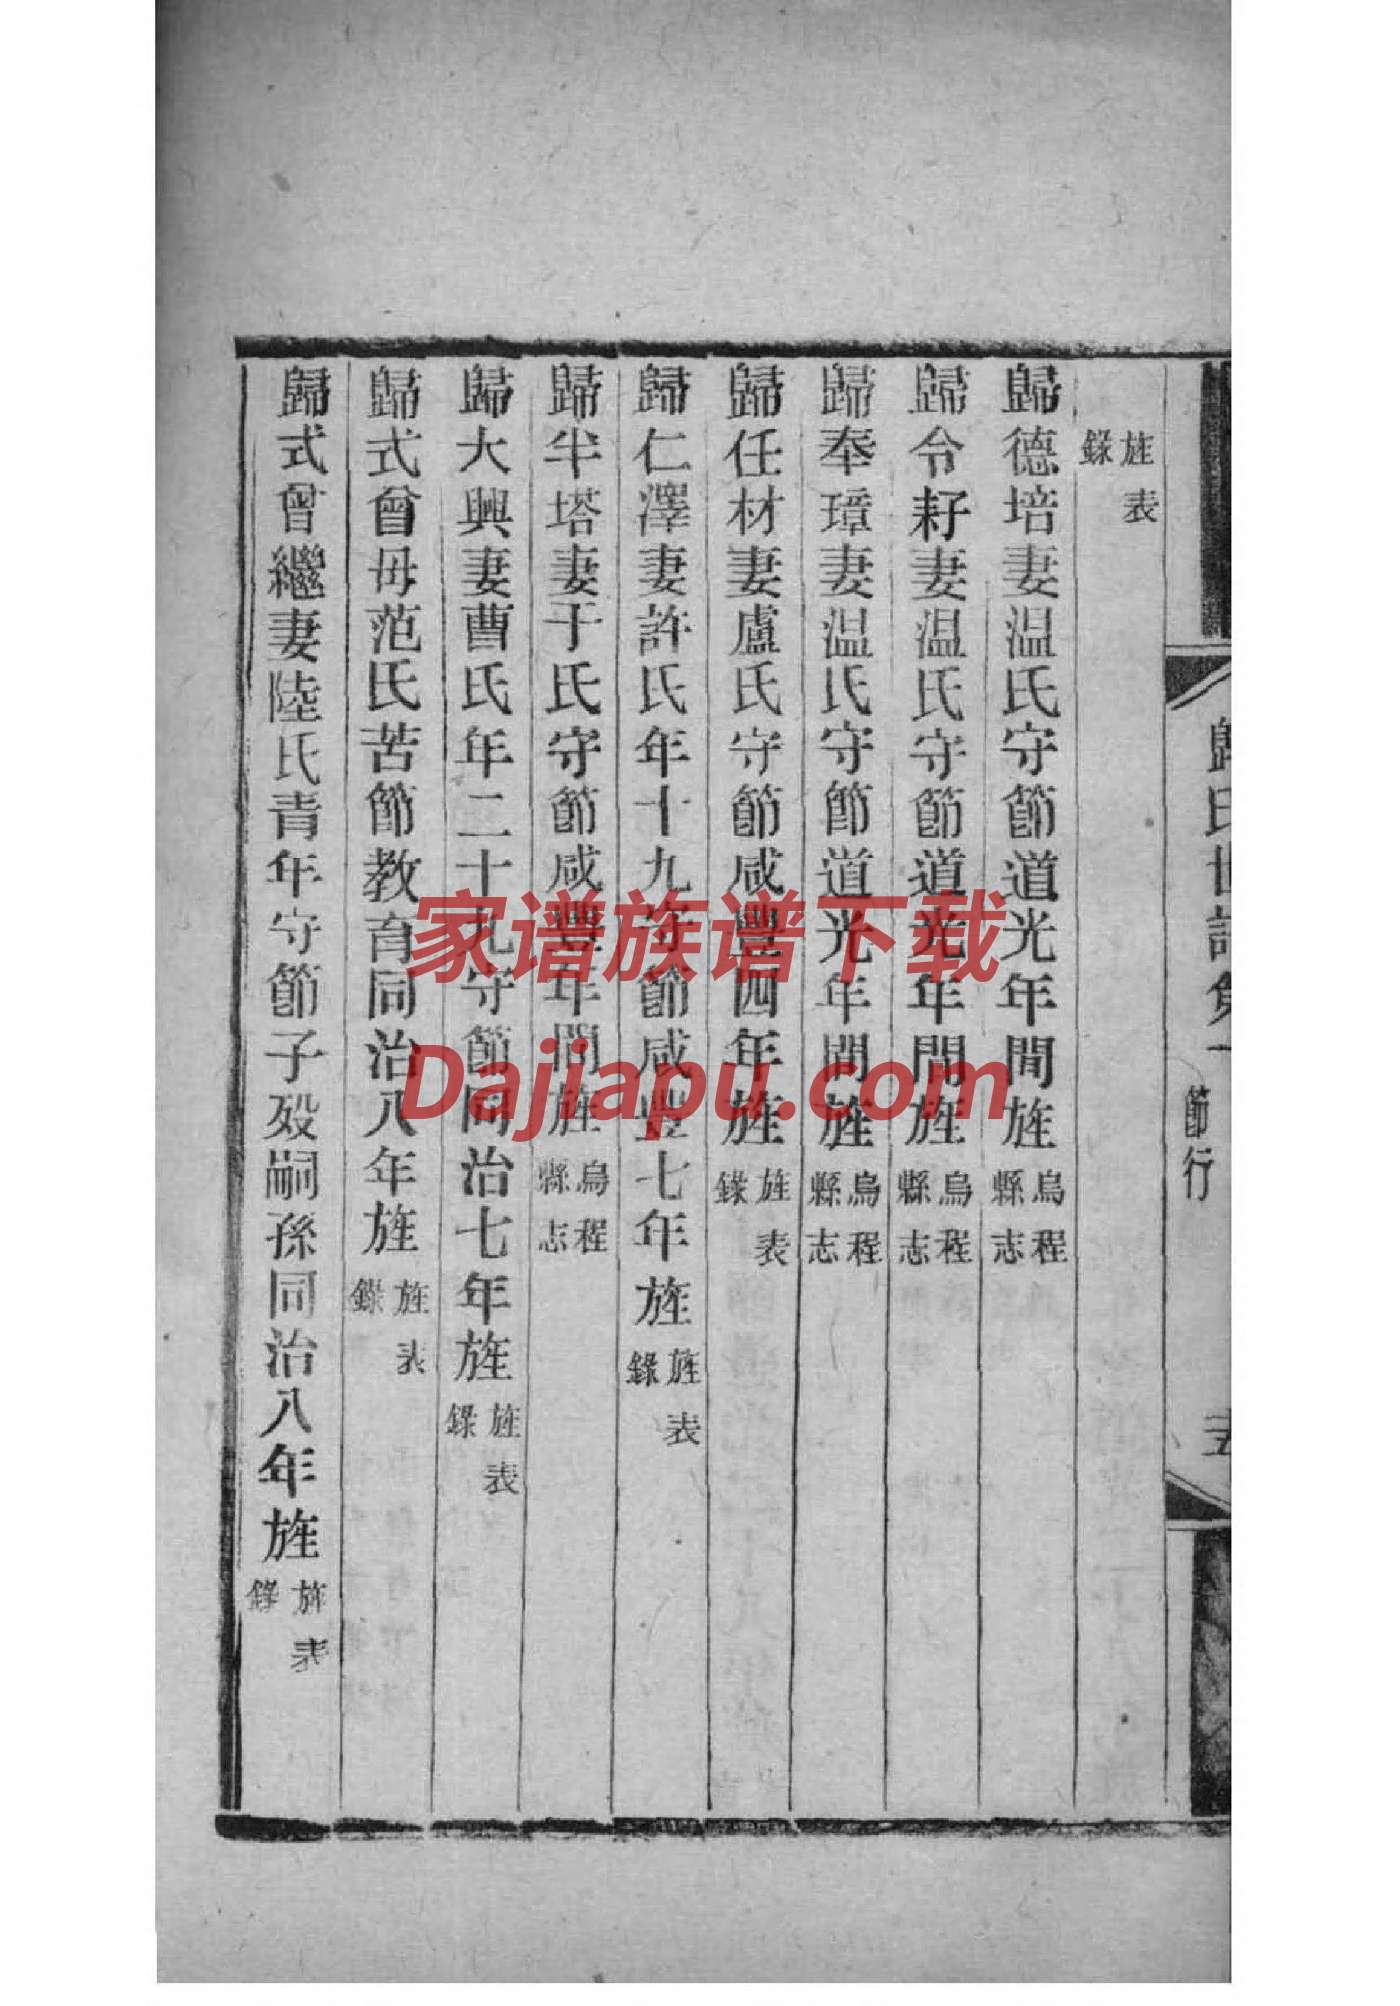 旌表錄
歸德培妻温氏守節道光年間旌烏程縣志
歸令耔妻温氏守節道光年間旌烏程縣志
歸奉璋妻温氏守節道光年間旌烏程縣志
歸任材妻盧氏守節咸豐四年旌旌表錄
歸仁澤妻許氏年十九守節咸豐七年旌旌表錄
歸半塔妻于氏守節咸豐年間旌烏程縣志
歸大興妻曹氏年二十九守節同治七年旌旌表錄
歸式曾母范氏苦節教育同治八年旌旌表錄
歸式曾繼妻陸氏青年守節子歿嗣孫同治八年旌旌表錄
歸氏世譜
節行
家谱族谱下载
Dajiapu.com